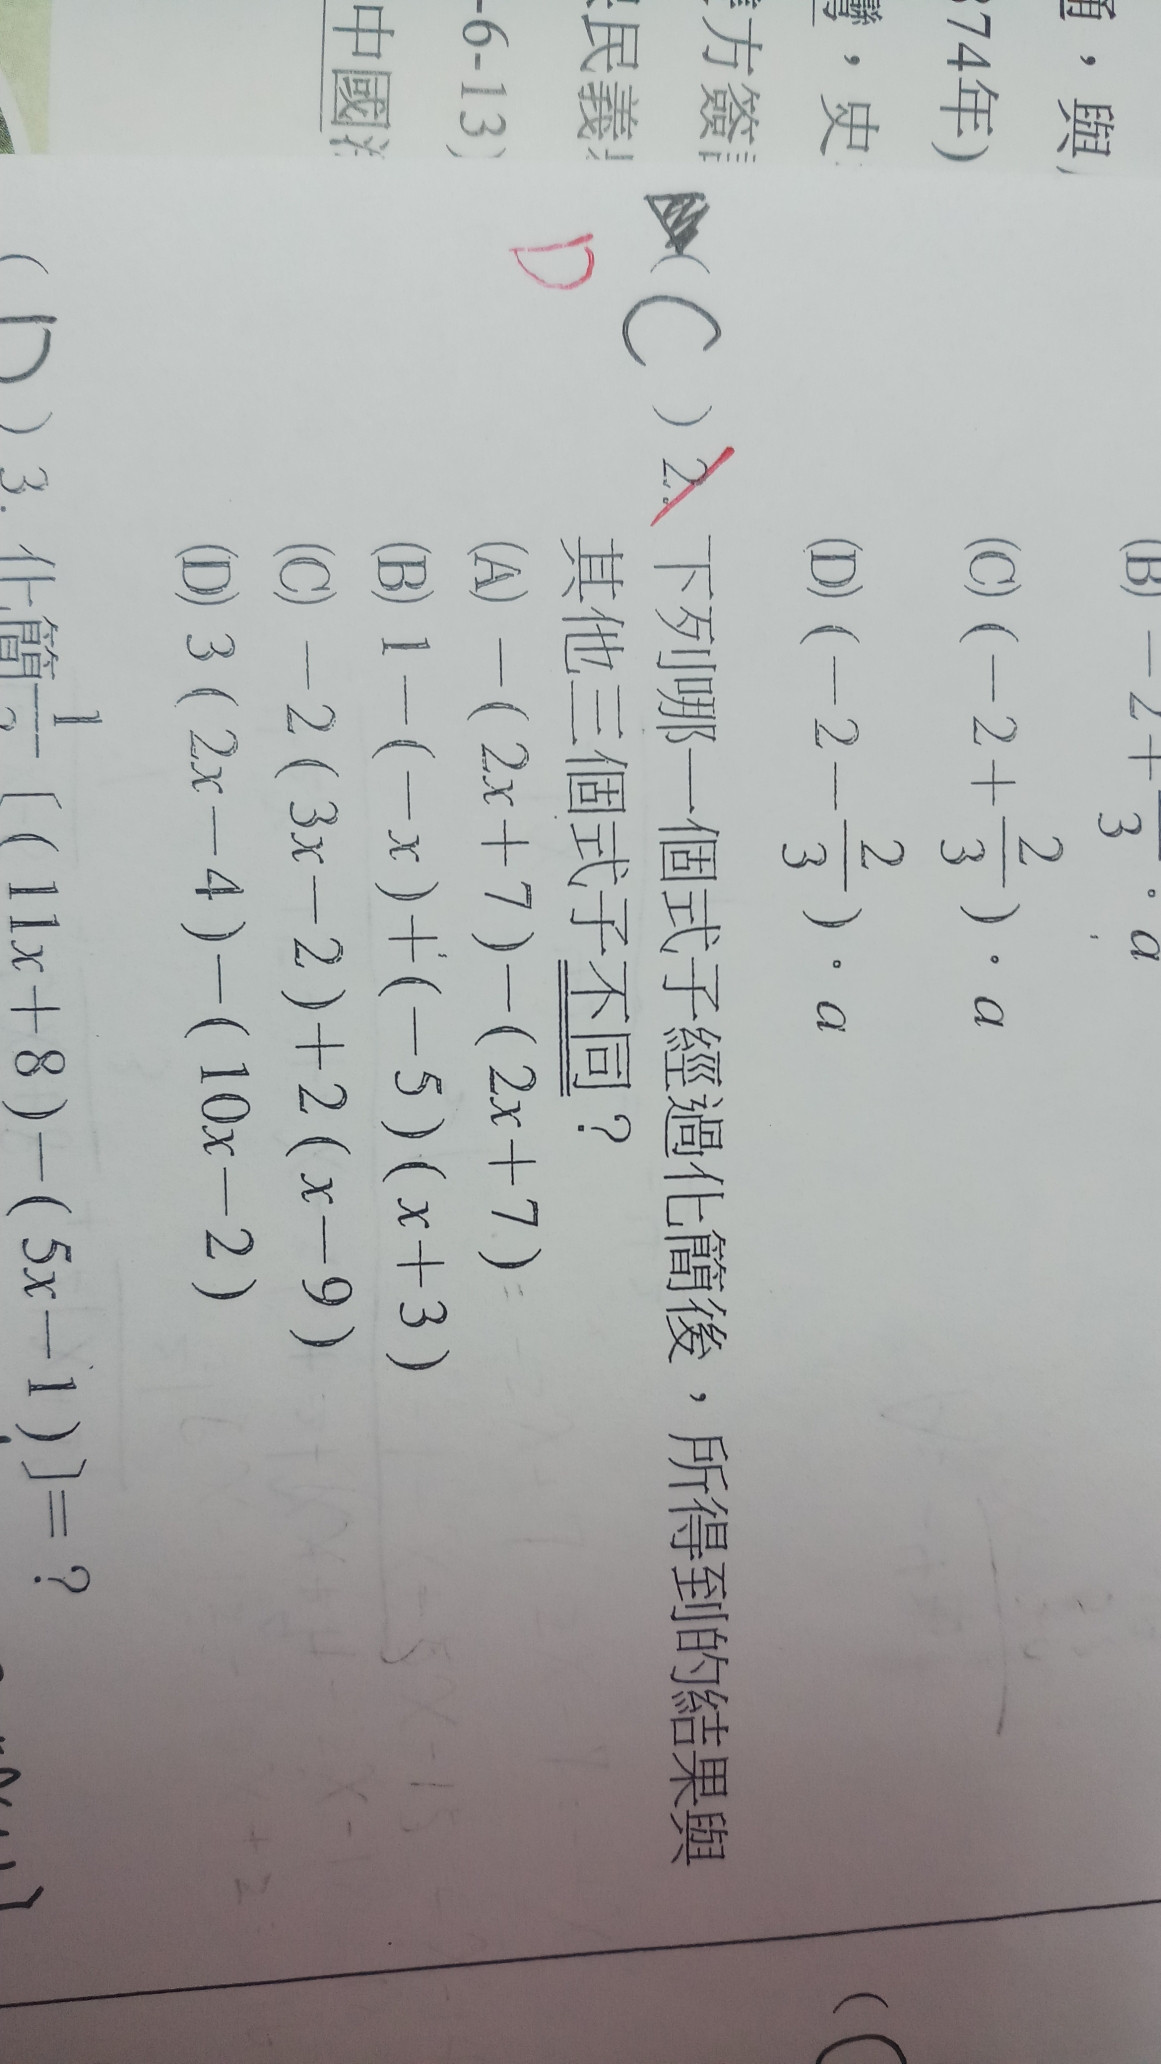 通，與
374年)
灣，史
方簽
民義
-6-13)
中國
(B) －2＋ 3 · a
(C) (－2＋2/3) · a
(D) (－2－2/3) · a
( C ) 2. 下列哪一個式子經過化簡後，所得到的結果與
D
其他三個式子不同？
(A) －(2x＋7)－(2x＋7) =
(B) 1－(－x)＋(－5)(x＋3)
(C) －2(3x－2)＋2(x－9)
(D) 3(2x－4)－(10x－2)
( D ) 3. 化簡 1 [(11x＋8)－(5x－1)]＝？